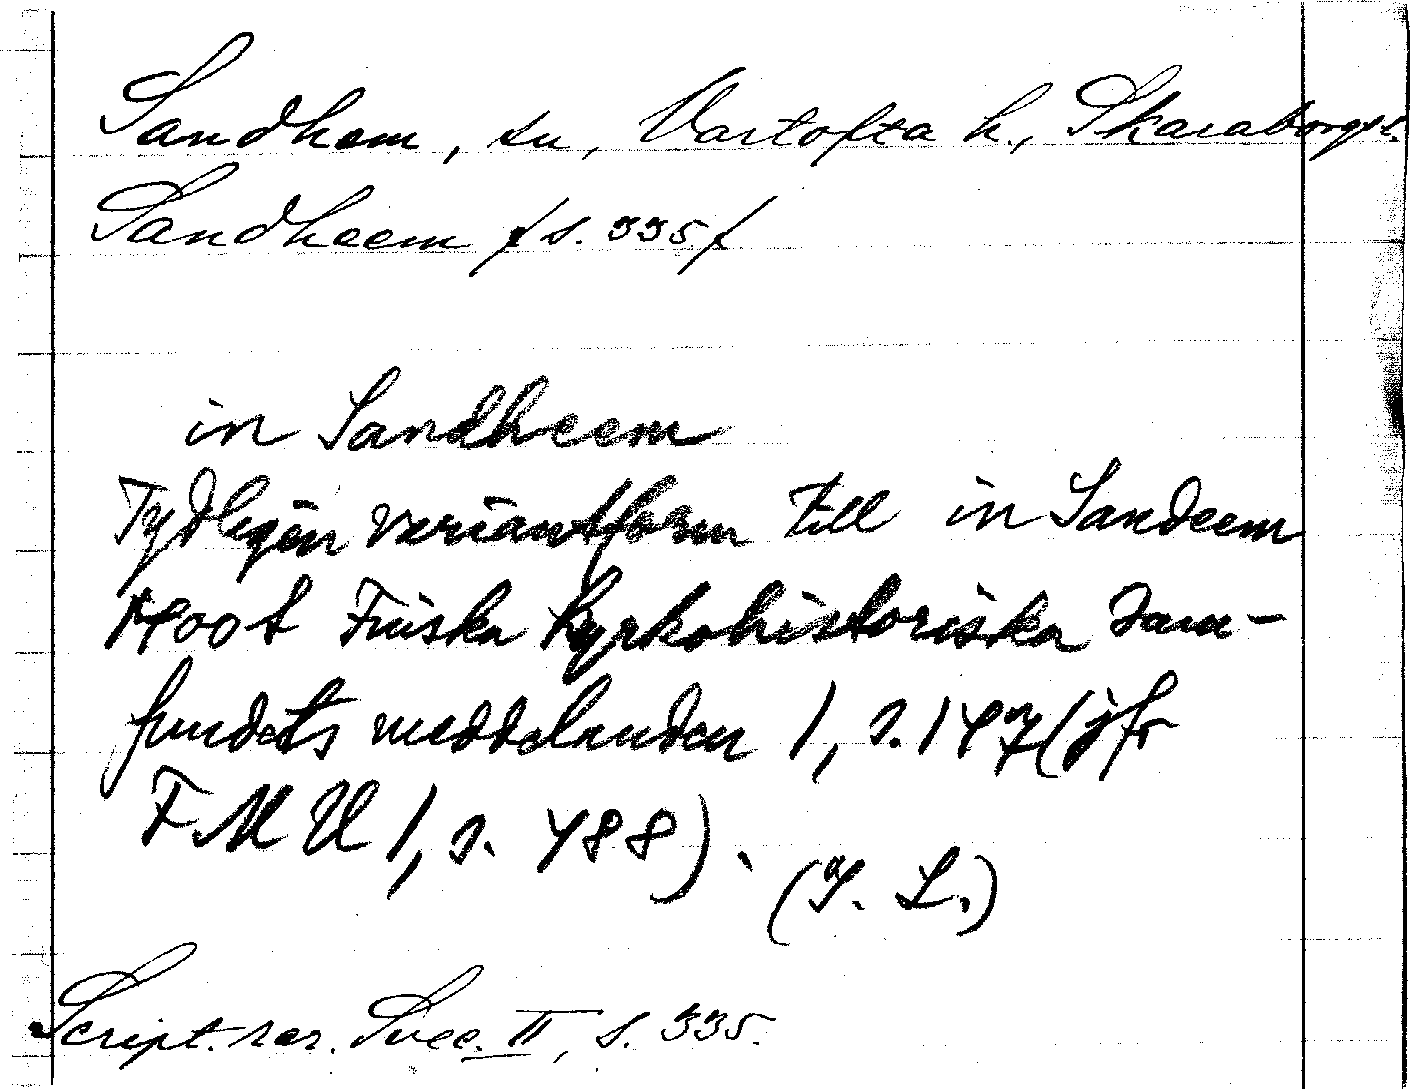 Sandhem, sn, Vartofta h., Skaraborgs l.
Sandheem /s. 335/
in Sandheem
Tydligen variantform till in Sandeem
1400 t Finska Kyrkohistoriska Sam-
fundets meddelanden 1, s. 147 (jfr
FMU 1, s. 488). (I. L.)
Script. rer. Svec. II, s. 335.